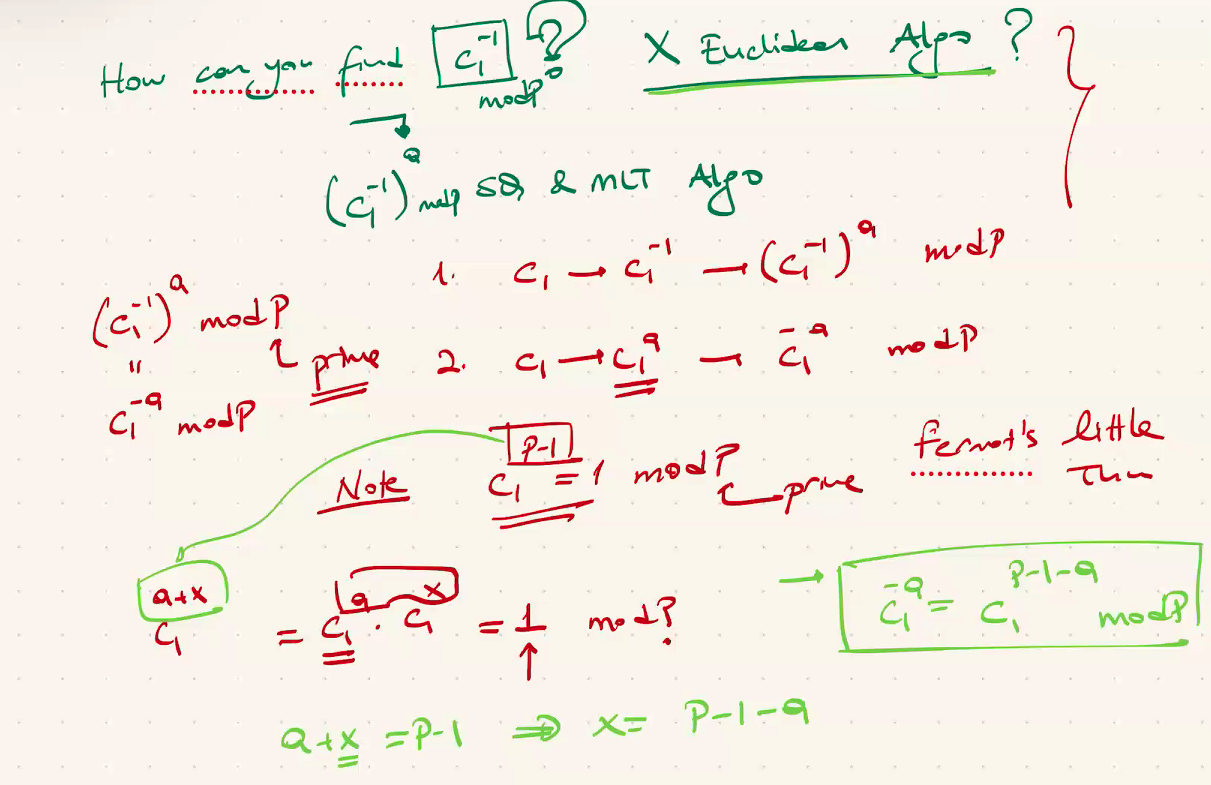 How can you find C₁⁻¹ mod P ? X Euclidean Algo ?
(C₁⁻¹)ᵃ mod P SQ & MLT Algo
1. C₁ → C₁⁻¹ → (C₁⁻¹)ᵃ mod P
(C₁⁻¹)ᵃ mod P
prime
"
C₁⁻ᵃ mod P
2. C₁ → C₁ᵃ → C₁⁻ᵃ mod P
Note C₁^(P-1) = 1 mod P
prime
fermat's little
Thm
C₁^(a+x) = C₁ᵃ · C₁ˣ = 1 mod P
→ C₁⁻ᵃ = C₁^(P-1-a) mod P
a+x = P-1 ⇒ x = P-1-a